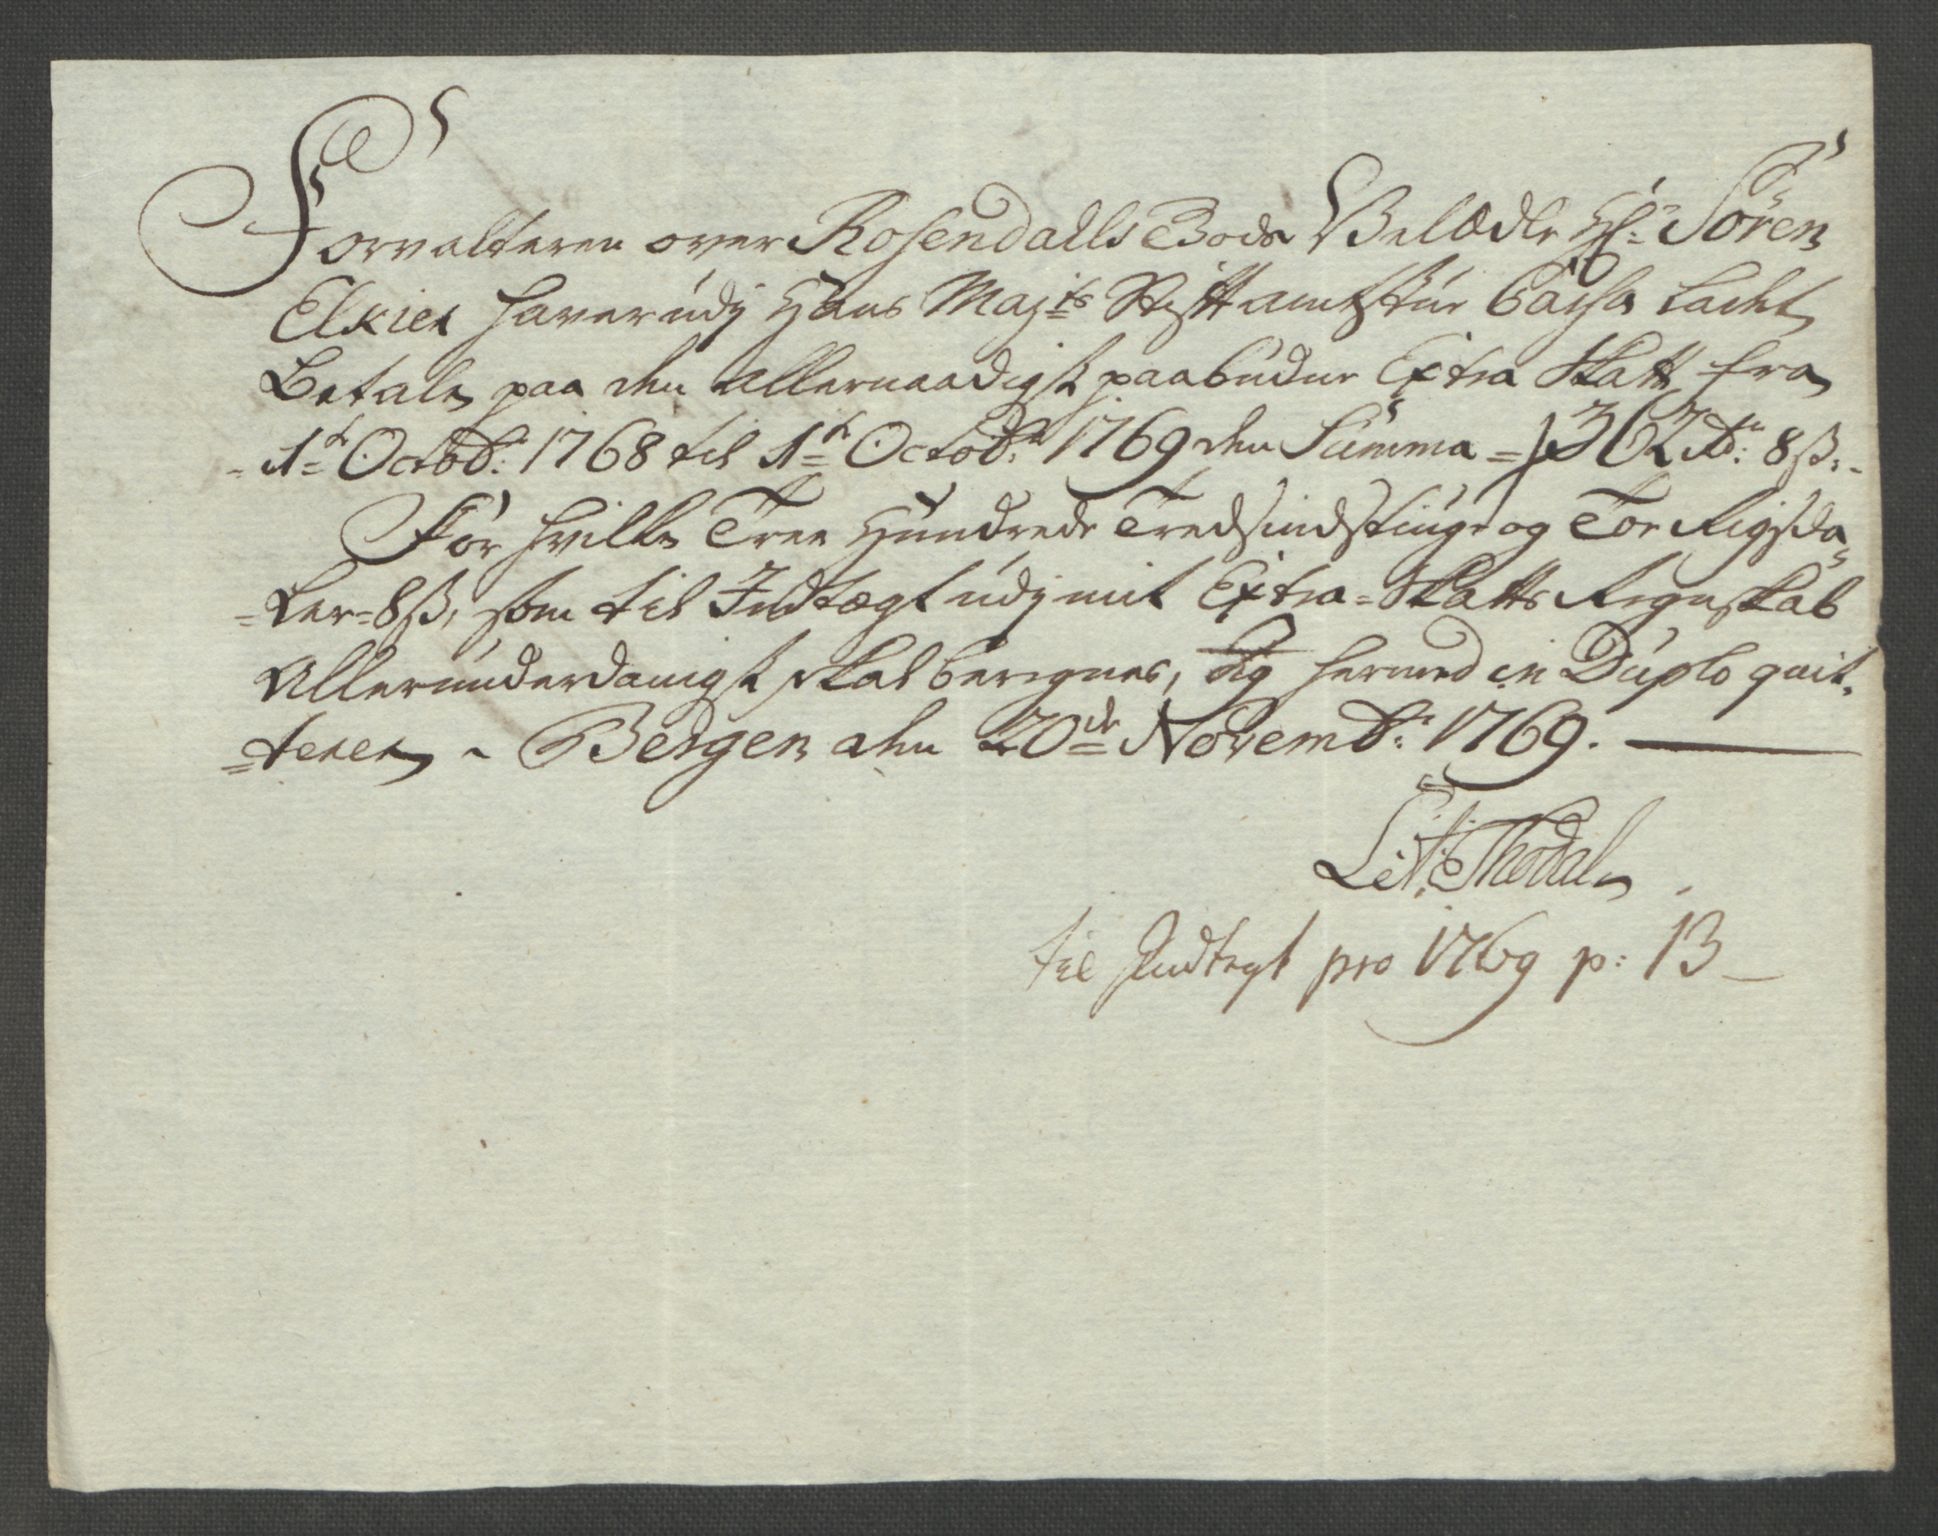 Forvalteren over Rosendalls Gods Velædle Hr: Sören
Elkier haver udj Hans Majts Stiftamtstue Cassa ladet
Betale paa den allernaadigst paabudne Extra Skatt fra
1te Octobr: 1768 til 1te Octobr: 1769 den Summa = 362 Rdr: 8 ß:
For hvilke Tree Hundrede Tredsindstiuge og Toe Rigsda=
=ler = 8 ß, som til Indtægt udj mit Extra = Skatts Regnskab
Allerunderdanigst skal beregnes, hermed in Duplo quit=
=terer, Bergen den 20de Novembr: 1769.
Thodal
til Indtegt pro 1769 p: 13